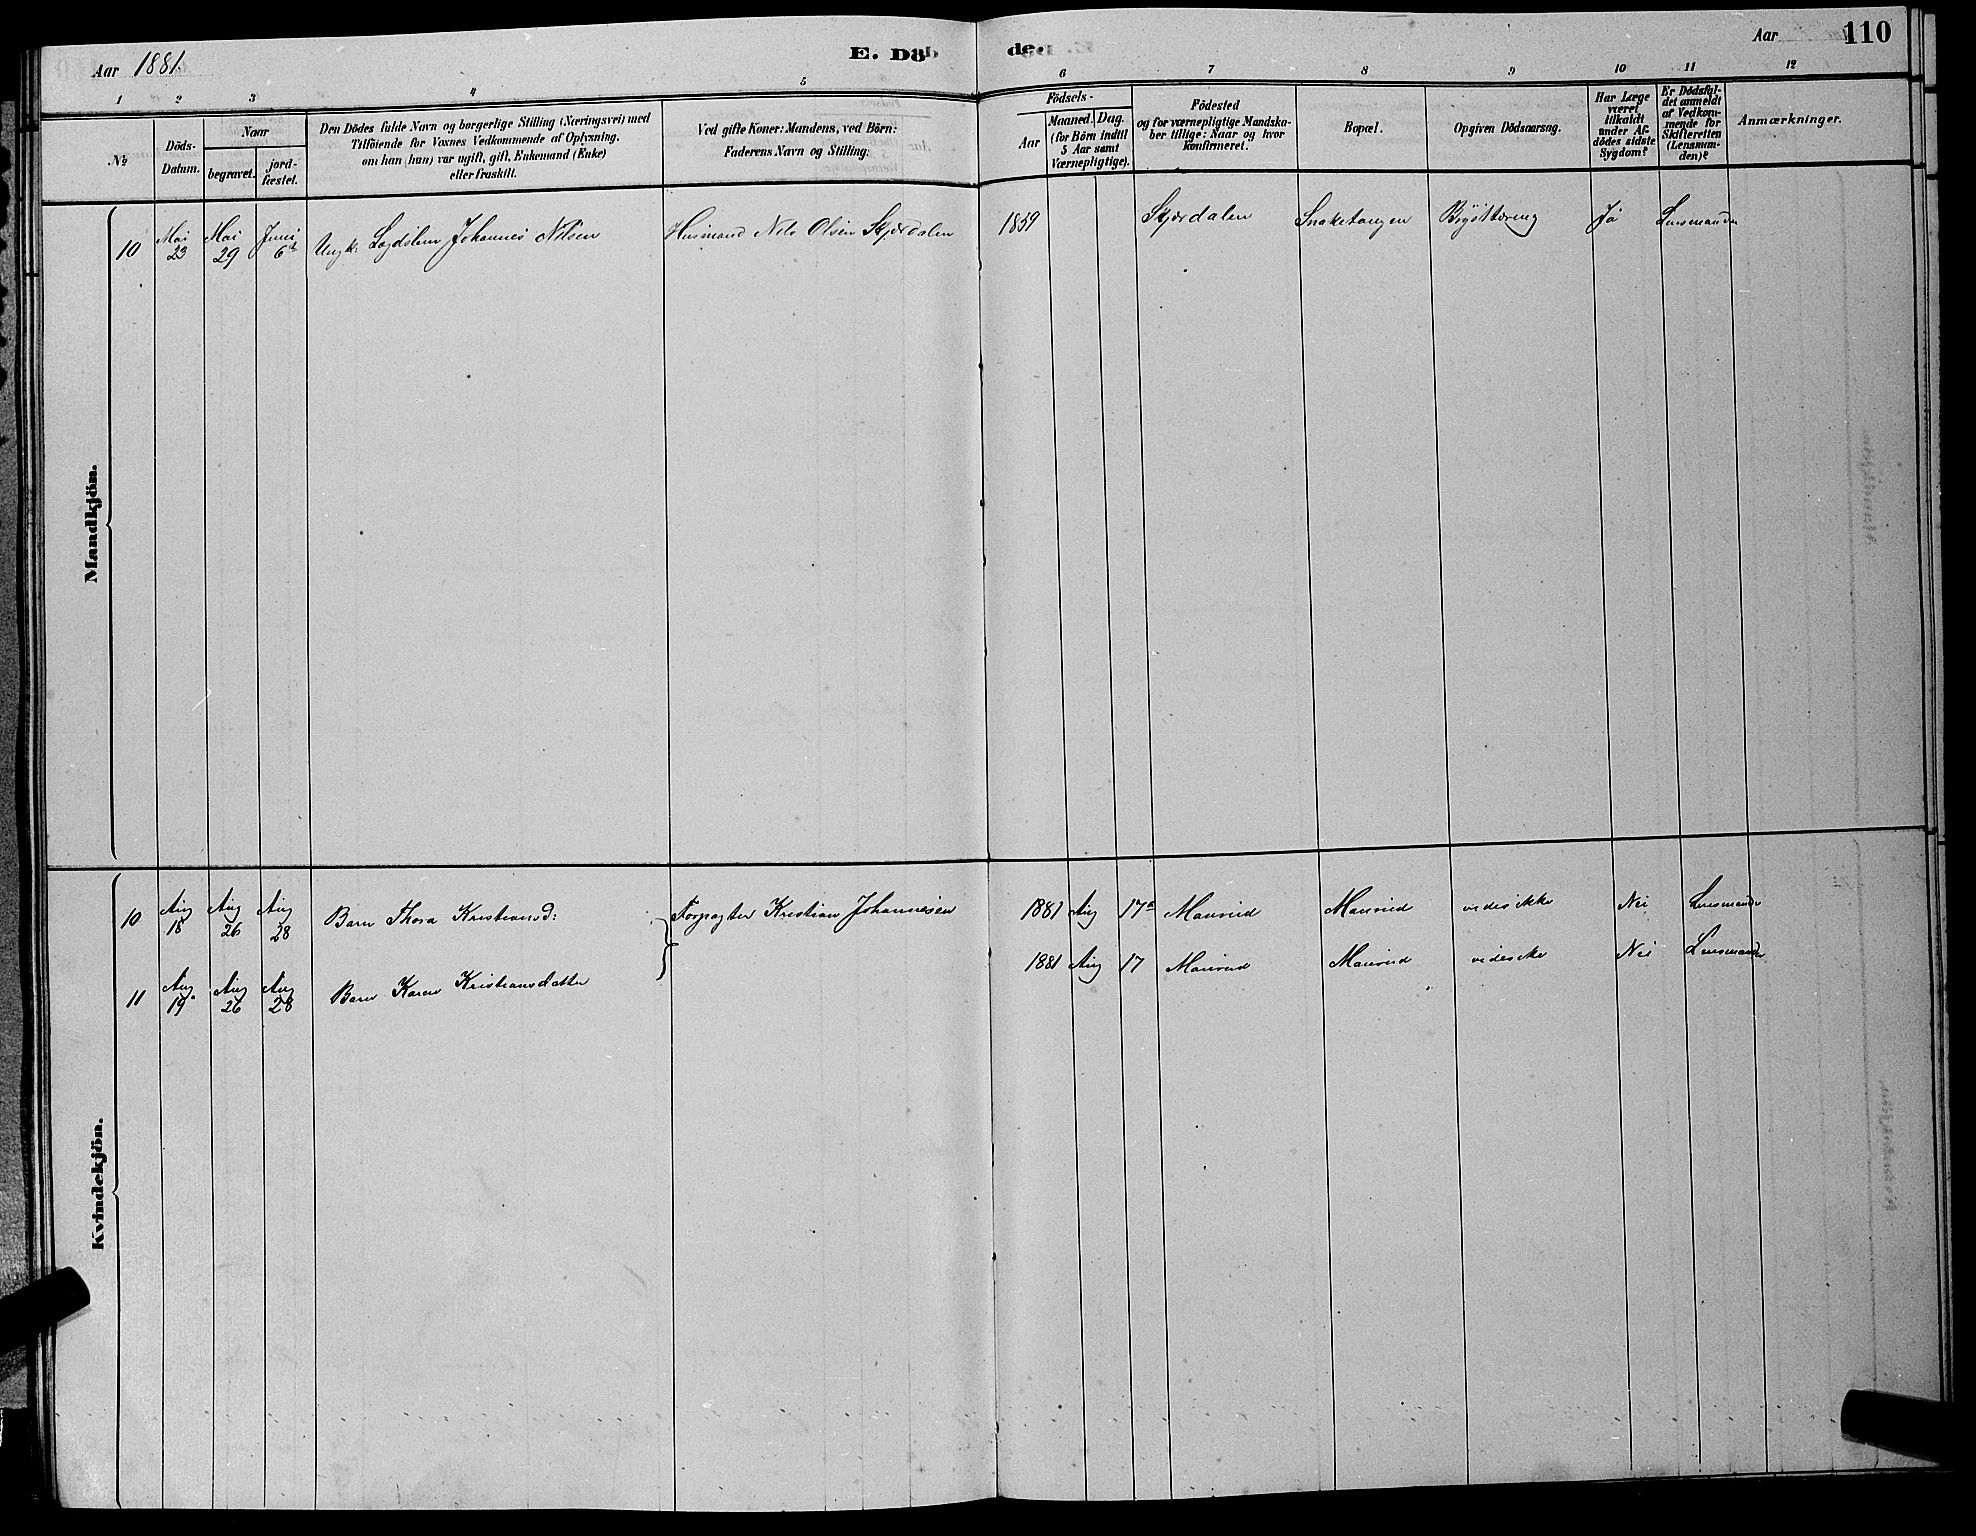 Aar 1881.
E. Döb
de.
Aar
110
1 2 3 4 5 6 7 8 9 10 11 12
No
Döds-
Datum.
Naar
begravet.
jord-
fæstet.
Den Dödes fulde Navn og borgerlige Stilling (Næringsvei) med
Tilföiende for Voxnes Vedkommende af Oplysning,
om han (hun) var ugift, gift, Enkemand (Enke)
eller fraskilt.
Ved gifte Koner: Mandens, ved Börn:
Faderens Navn og Stilling.
Födsels-
Aar
Maaned. Dag.
(for Börn indtil
5 Aar samt
Værnepligtige).
Födested
og for værnepligtige Mandska-
ber tillige: Naar og hvor
konfirmeret.
Bopæl.
Opgiven Dödsaarsag.
Har Læge
været
tilkaldt
under Af-
dödes sidste
Sygdom?
Er Dödsfal-
det anmeldt
af Vedkom-
mende for
Skifteretten
(Lensman-
den)?
Anmærkninger.
Mandkjön.
10 Mai 23 Mai 29 Juni 6te Ungk: Lægdslem Johannes Nilsen Husmand Nils Olsen Skjærdalen 1859 Skjærdalen Snaketangen Brÿsttæring Ja Lensmanden
Kvindekjön.
10 Aug 18 Aug 26 Aug 28 Barn Thora Kristiansd: Forpagter Kristian Johannesen 1881 Aug 17de Maurud Maurud vides ikke Nei Lensmanden
11 Aug 19. Aug 26 Aug 28 Barn Karen Kristiansdatter 1881 Aug 17 Maurud Maurud vides ikke Nei Lensmanden